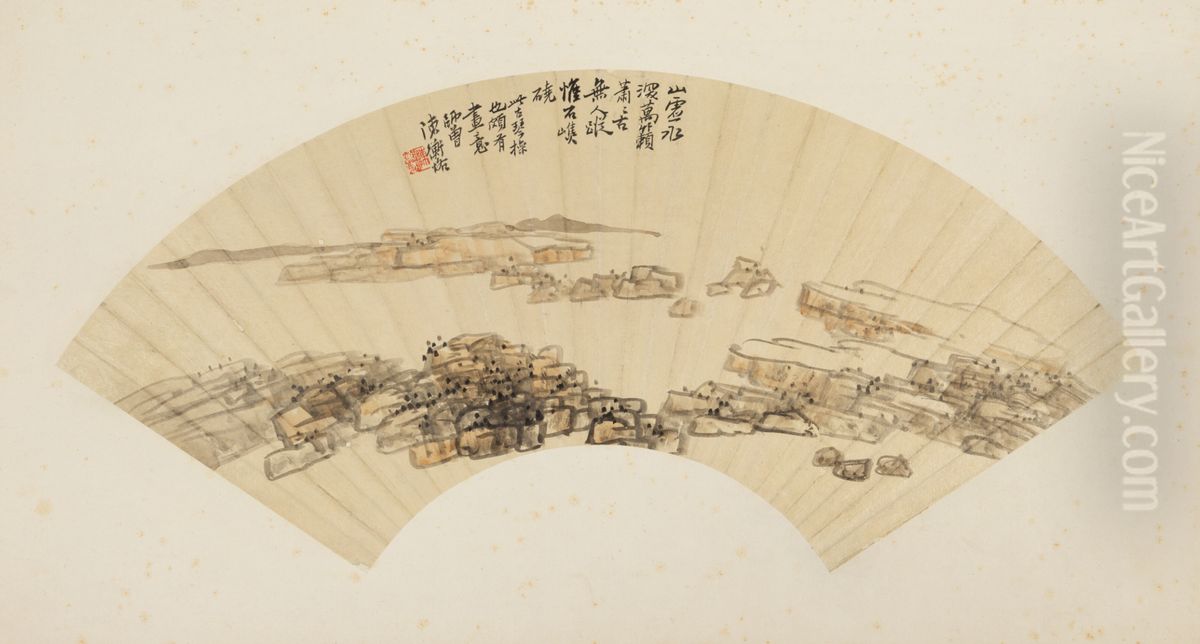 山虛水
深萬籟
蕭〻古
無人蹤
惟石嶕
嶢
此古琴操
也頗有
畫意
師曾
陳衡恪
NiceArtGallery.com